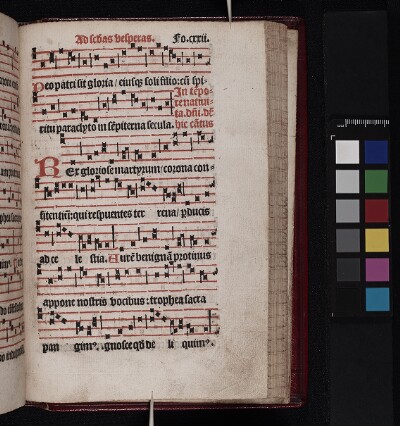 Ad scđas vesperas. Fo.cxxii.
Deo patri sit gloria / eiusq3 soli filio: cũ spi-
In tẽpo
re natiui-
ta. dñi. dr̃
ritu paraclyto in sẽpiterna secula. hic cãtus
Rex gloriose martyrum / corona con-
fitentiũ: qui respuentes ter rena / p̱ducis
ad ce le stia. Aurẽ benignã protinus
appone nostris vocibus: trophea sacra
pan gim⁹. gnosce qđ de li quim⁹.